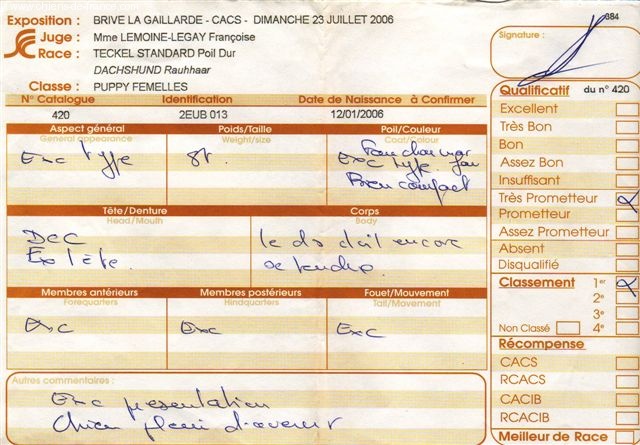 Exposition : BRIVE LA GAILLARDE - CACS - DIMANCHE 23 JUILLET 2006
Juge : Mme LEMOINE-LEGAY Françoise
Race : TECKEL STANDARD Poil Dur
DACHSHUND Rauhhaar
Classe : PUPPY FEMELLES
684
Signature :
N° Catalogue Identification Date de Naissance à Confirmer
420 2EUB 013 12/01/2006
Aspect général Poids/Taille Poil/Couleur
General appearance Weight/size Coat/Colour
Exc type St.
Exc type
Bien compact
Tête/Denture Corps
Head/Mouth Body
Exc tête. le dos doit encore
se tendre.
Membres antérieurs Membres postérieurs Fouet/Mouvement
Forequarters Hindquarters Tail/Movement
Exc Exc Exc
Autres commentaires :
Exc presentation
Chien plein d'avenir
Qualificatif du n° 420
Excellent
Très Bon
Bon
Assez Bon
Insuffisant
Très Prometteur
Prometteur
Assez Prometteur
Absent
Disqualifié
Classement 1er
2e
3e
Non Classé 4e
Récompense
CACS
RCACS
CACIB
RCACIB
Meilleur de Race